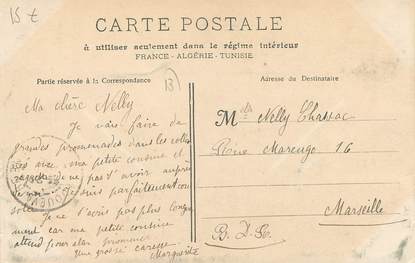 15 €
CARTE POSTALE
à utiliser seulement dans le régime intérieur
FRANCE - ALGÉRIE - TUNISIE
Partie réservée à la Correspondance
Adresse du Destinataire
13
Ma chère Nelly
Je vais faire de
grandes promenades dans les
avec ma petite cousine et
de ne pas t'avoir auprès
de moi. Je suis parfaitement
Je ne t'écris pas plus
car ma petite cousine
attend pour aller promener
Une grosse caresse
Marguerite
Melle Nelly Chassac
Rue Marengo 16
Marseille
B. D. R.